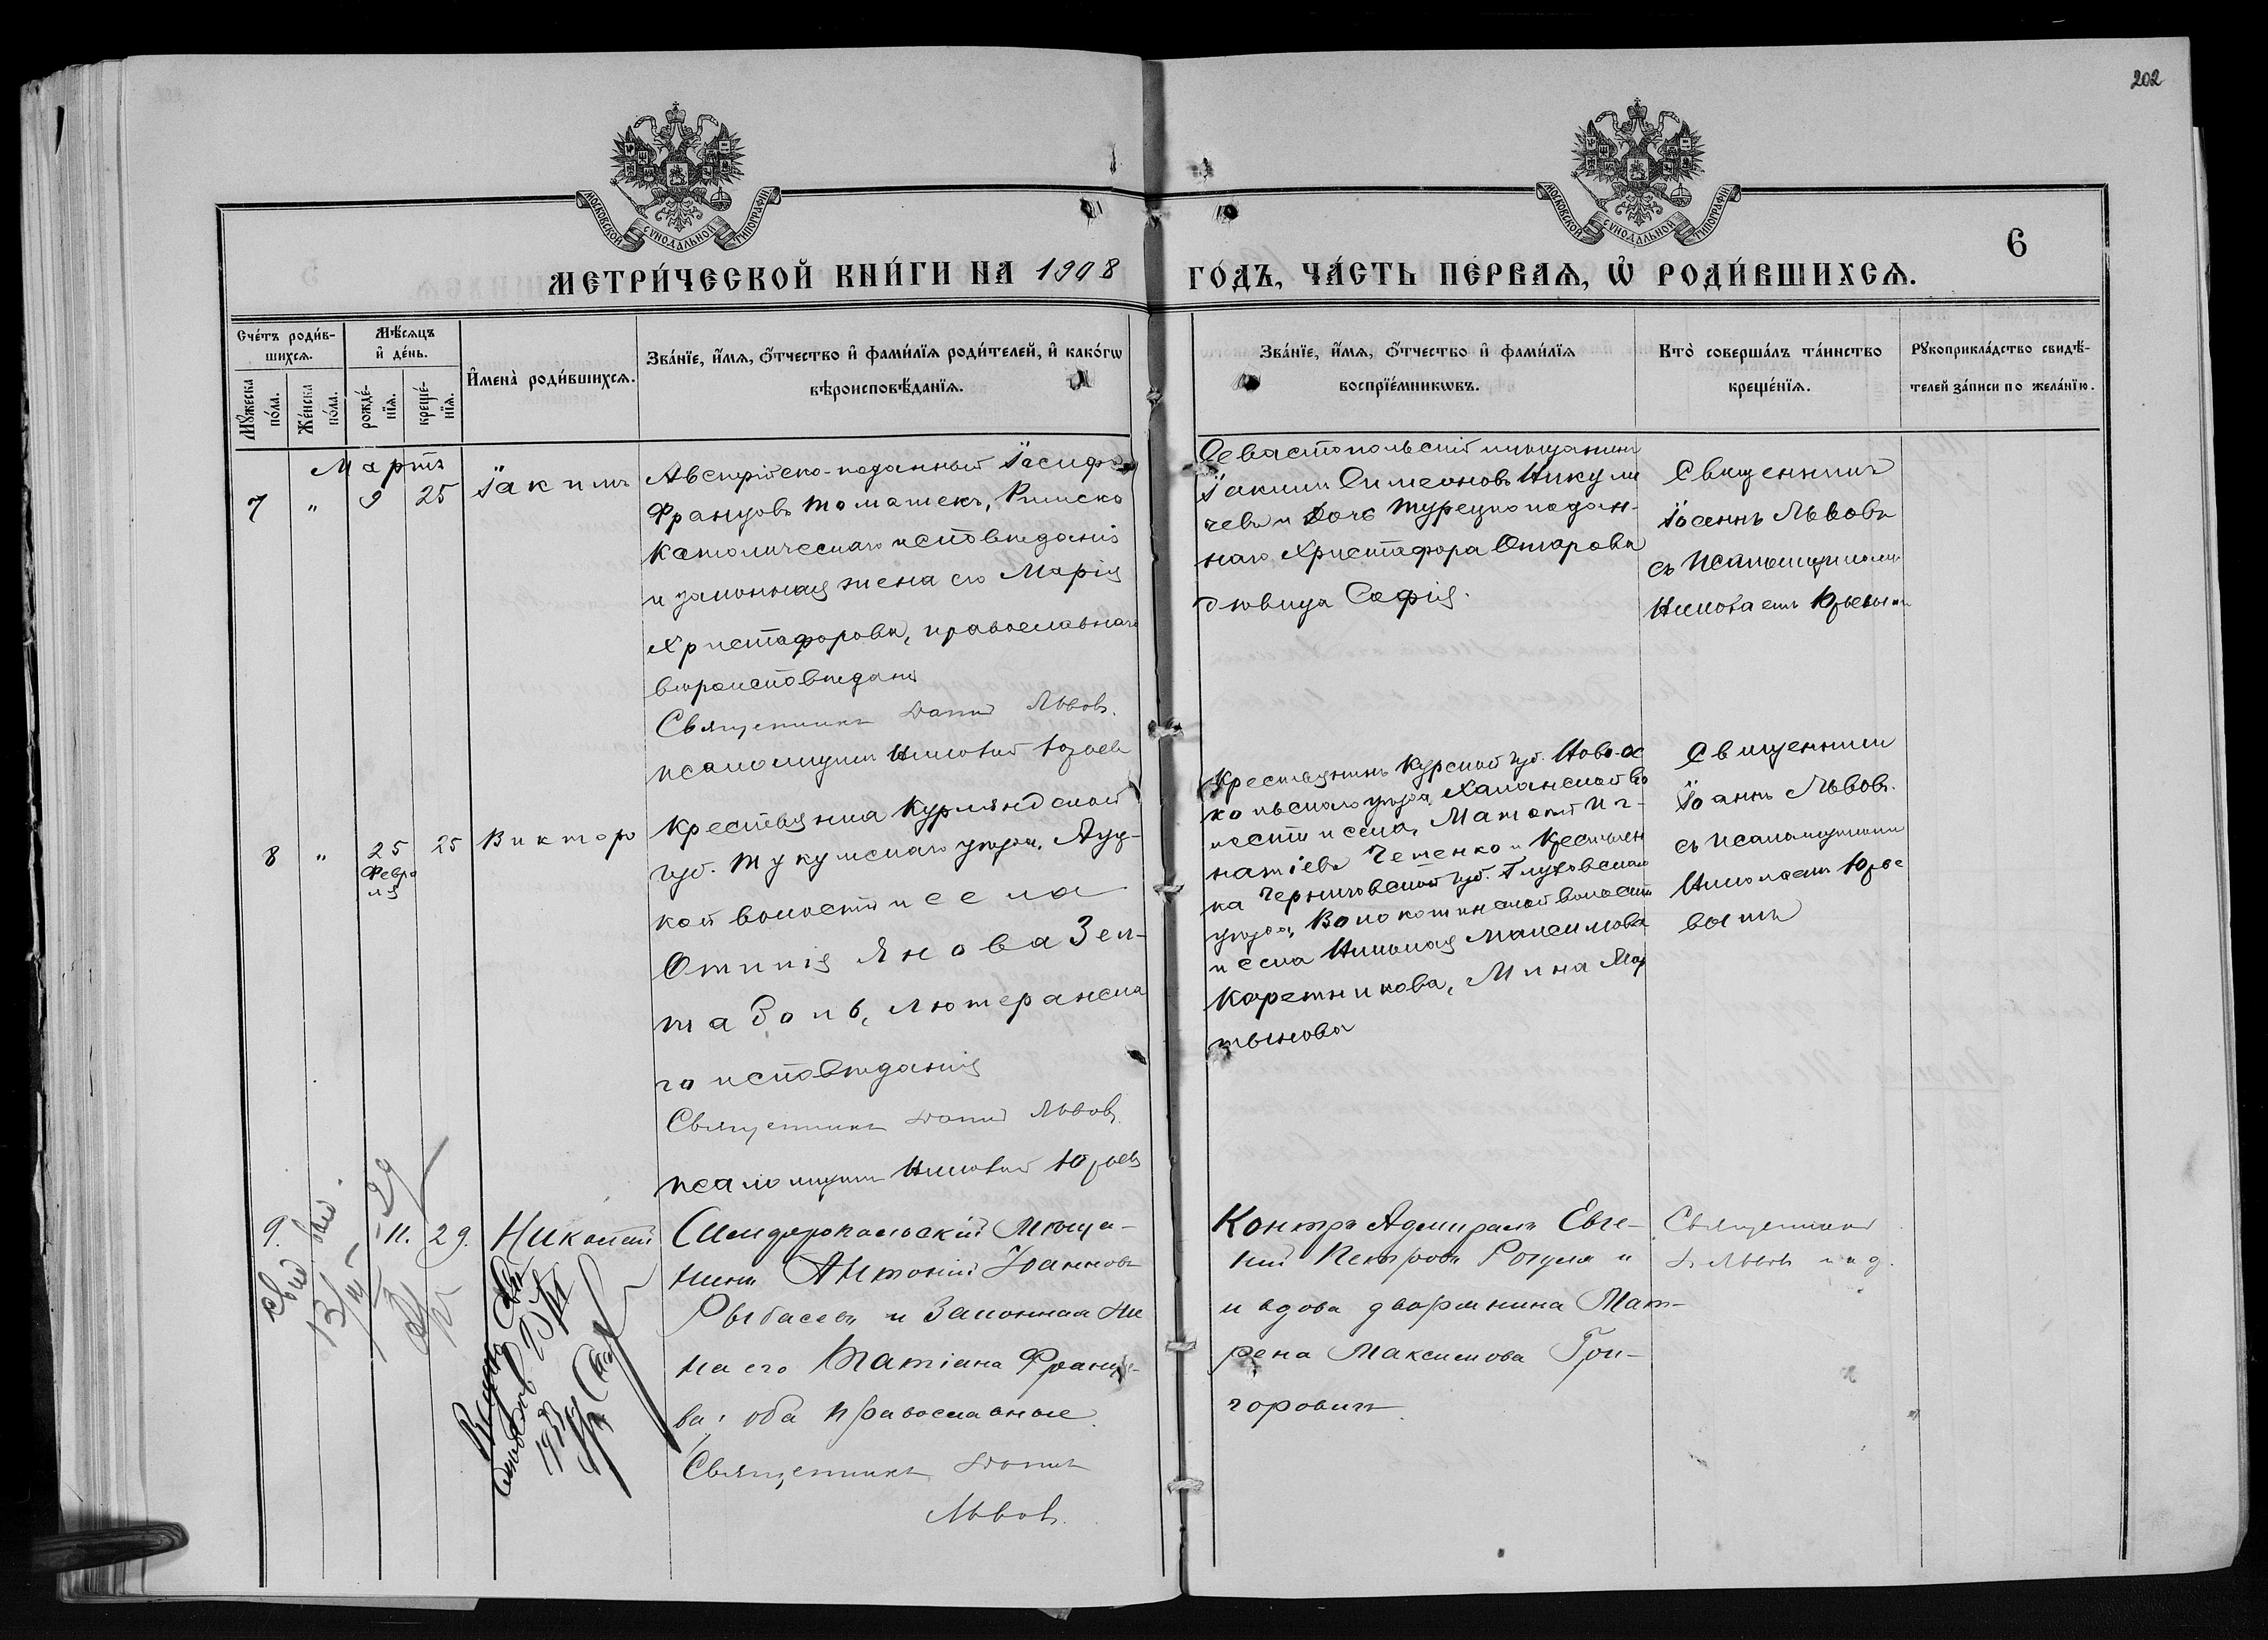 202
МОСКОВСКОЙ СѴНОДАЛЬНОЙ ТИПОГРАФІИ
МОСКОВСКОЙ СѴНОДАЛЬНОЙ ТИПОГРАФІИ
6
МЕТРИ́ЧЕСКОЙ КНИ́ГИ НА 1908 ГО́ДЪ, ЧА́СТЬ ПЕ́РВАѦ, Ѡ҆ РОДИ́ВШИХСѦ.
Сче́тъ роди́в-
шихсѧ.
Мꙋ́жеска
по́ла.
Же́нска
по́ла.
Мѣ́сѧцъ
и҆ де́нь.
рожде́-
нїѧ.
креще́-
нїѧ.
И҆мена̀ роди́вшихсѧ.
Зва́нїе, и҆́мѧ, ѻ҆́тчество и҆ фами́лїѧ роди́телей, и҆ како́гѡ
вѣроисповѣ́данїѧ.
Зва́нїе, и҆́мѧ, ѻ҆́тчество и҆ фами́лїѧ
воспрїе́мникѡвъ.
Кто̀ соверша́лъ та́инство
креще́нїѧ.
Рꙋкоприкла́дство свидѣ́-
телей за́писи по жела́нїю.
Мартъ
7 " 9 25
Іакимъ
Австрійско-поданный Іосифъ
Францовъ Томашекъ, Римско
католическаго исповѣданія
и законная жена его Марія
Христафорова, православнаго
вѣроисповѣданія
Священникъ Львовъ.
псаломщикъ Николай Юрьевъ
Севастопольскій мѣщанинъ
Іакимъ Симеоновъ Никули
чевъ и дочь турецкоподан-
наго Христафора Отарова
дѣвица Софія.
Священникъ
Іоаннъ Львовъ
съ псаломщикомъ
Николаемъ Юрьевымъ
8 " 25 25
Февра
ля
Викторъ
Крестьянка Курляндской
губ. Тукумскаго уѣзда, Ауц-
кой волости и села
Отилія Янова Зел-
таволь, лютеранска
го исповѣданія
Священникъ Львовъ
псаломщикъ Николай Юрьевъ
Крестьянинъ Курской губ. Ново-ос
кольскаго уѣзда, Халанской во
лости и села, Матвѣй Иг-
натіевъ Чепенко и Крестьян
ка Черниговской губ. Глуховскаго
уѣзда, Волокотинской волости
и села Николая Максимова
Каретникова, Мина Мар
тынова
Священникъ
Іоаннъ Львовъ.
съ псаломщикомъ
Николаемъ Юрье
вымъ
9. 11. 29.
Николай
Симферопольскій мѣща-
нинъ Антоній Іоанновъ
Рыбасевъ и законная же
на его Татіана Францо-
ва; оба православные.
Священникъ
Львовъ.
Контръ Адмиралъ Евге-
ній Петровъ Рогуля и
и вдова дворянина Мат-
рена Максимова Гри-
горовичъ.
Священникъ
Львовъ